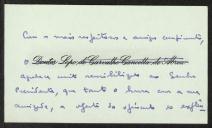 Com os mais respeitosos e amigos cumprimentos,
o Doutor Lopo de Carvalho Cancella de Abreu
agradece muito sensibilizado ao Senhor
Presidente, que tanto o honra com a sua
amizade, a oferta do